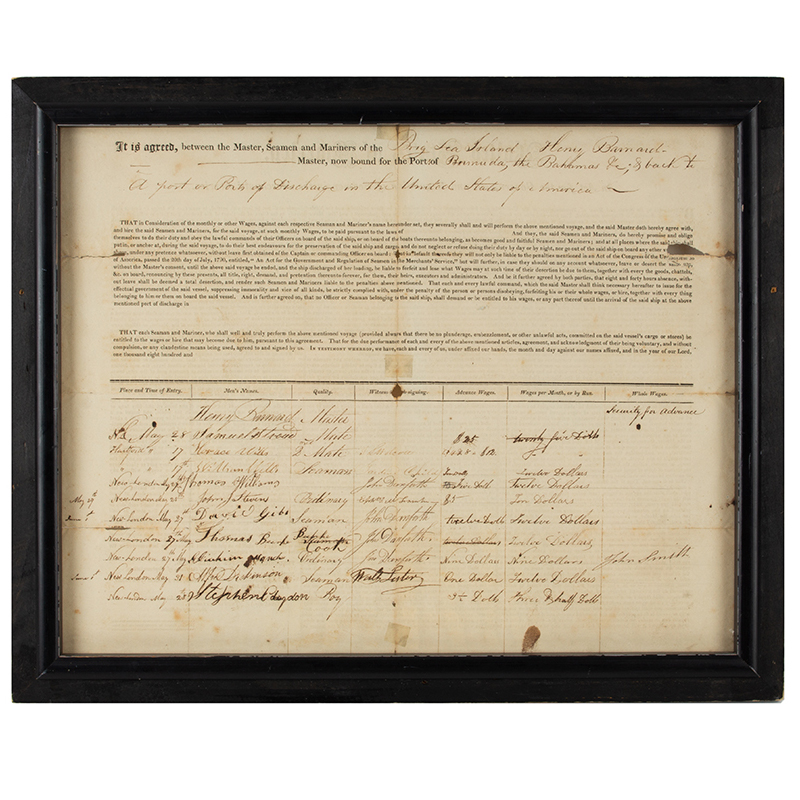 It is agreed, between the Master, Seamen and Mariners of the Brig Sea Island Henry Barnard
Master, now bound for the Port of Bermuda, the Bahamas &c; & back to
A port or Ports of Discharge in the United States of America
THAT in Consideration of the monthly or other Wages, against each respective Seaman and Mariner's name hereunder set, they severally shall and will perform the above mentioned voyage, and the said Master doth hereby agree with,
and hire the said Seamen and Mariners, for the said voyage, at such monthly Wages, to be paid pursuant to the laws of And they, the said Seamen and Mariners, do hereby promise and oblige
themselves to do their duty and obey the lawful commands of their Officers on board of the said ship, or on board of the boats thereunto belonging, as becomes good and faithful Seamen and Mariners; and at all places where the said ship shall
put in, or anchor at, during the said voyage, to do their best endeavours for the preservation of the said ship and cargo, and do not neglect or refuse doing their duty by day or by night, nor go out of the said ship on board any other
shore, under any pretence whatsoever, without leave first obtained of the Captain or commanding Officer on board: that in default thereof they will not only be liable to the penalties mentioned in an Act of the Congress of the
of America, passed the 20th day of July, 1790, entitled, "An Act for the Government and Regulation of Seamen in the Merchants' Service," but will further, in case they should on any account whatsoever, leave or desert the
without the Master's consent, until the above said voyage be ended, and the ship discharged of her loading, be liable to forfeit and lose what Wages may at such time of their desertion be due to them, together with every the goods, chattels,
&c. on board, renouncing by these presents, all title, right, demand, and pretension thereunto forever, for them, their heirs, executors and administrators. And be it further agreed by both parties, that eight and forty hours absence, with-
out leave shall be deemed a total desertion, and render such Seamen and Mariners liable to the penalties above mentioned. That each and every lawful command, which the said Master shall think necessary hereafter to issue for the
effectual government of the said vessel, suppressing immorality and vice of all kinds, be strictly complied with, under the penalty of the person or persons disobeying, forfeiting his or their whole wages, or hire, together with every thing
belonging to him or them on board the said vessel. And is further agreed on, that no Officer or Seaman belonging to the said ship, shall demand or be entitled to his wages, or any part thereof until the arrival of the said ship at the above
mentioned port of discharge in
THAT each Seaman and Mariner, who shall well and truly perform the above mentioned voyage (provided always that there be no plunderage, embezzlement, or other unlawful acts, committed on the said vessel's cargo or stores) be
entitled to the wages or hire that may become due to him, pursuant to this agreement. That for the due performance of each and every of the above mentioned articles, agreement, and acknowledgment of their being voluntary, and without
compulsion, or any clandestine means being used, agreed to and signed by us. In testimony whereof, we have, each and every of us, under affixed our hands, the month and day against our names affixed, and in the year of our Lord,
one thousand eight hundred and
Place and Time of Entry. Men's Names. Quality. Witness to their signing. Advance Wages. Wages per Month, or by Run. Whole Wages.
Security for Advance
Henry Barnard Master
May 28 Samuel Mate $25 twenty five Dolls
Hartford " 17 Horace Wills 2 Mate
" " 17th Wills Seaman Twelve Dollars
New London May 27th Thomas Williams John Danforth Twelve Dollars
May 29th New London John Steven Ordinary $5 Ten Dollars
June 1st New London May 27th David Gibs Seaman John Danforth twelve Dolls Twelve Dollars
New London 27th May Thomas Seaman Cook John Danforth. twelve Dollars Twelve Dollars
New London 27th May Ordinary John Danforth Nine Dollars Nine Dollars John Smith
June 1st New London May 31 Dickinson Seaman One Dollar Twelve Dollars
New London May 28 Stephen Boy 3½ Dolls three & half Dolls